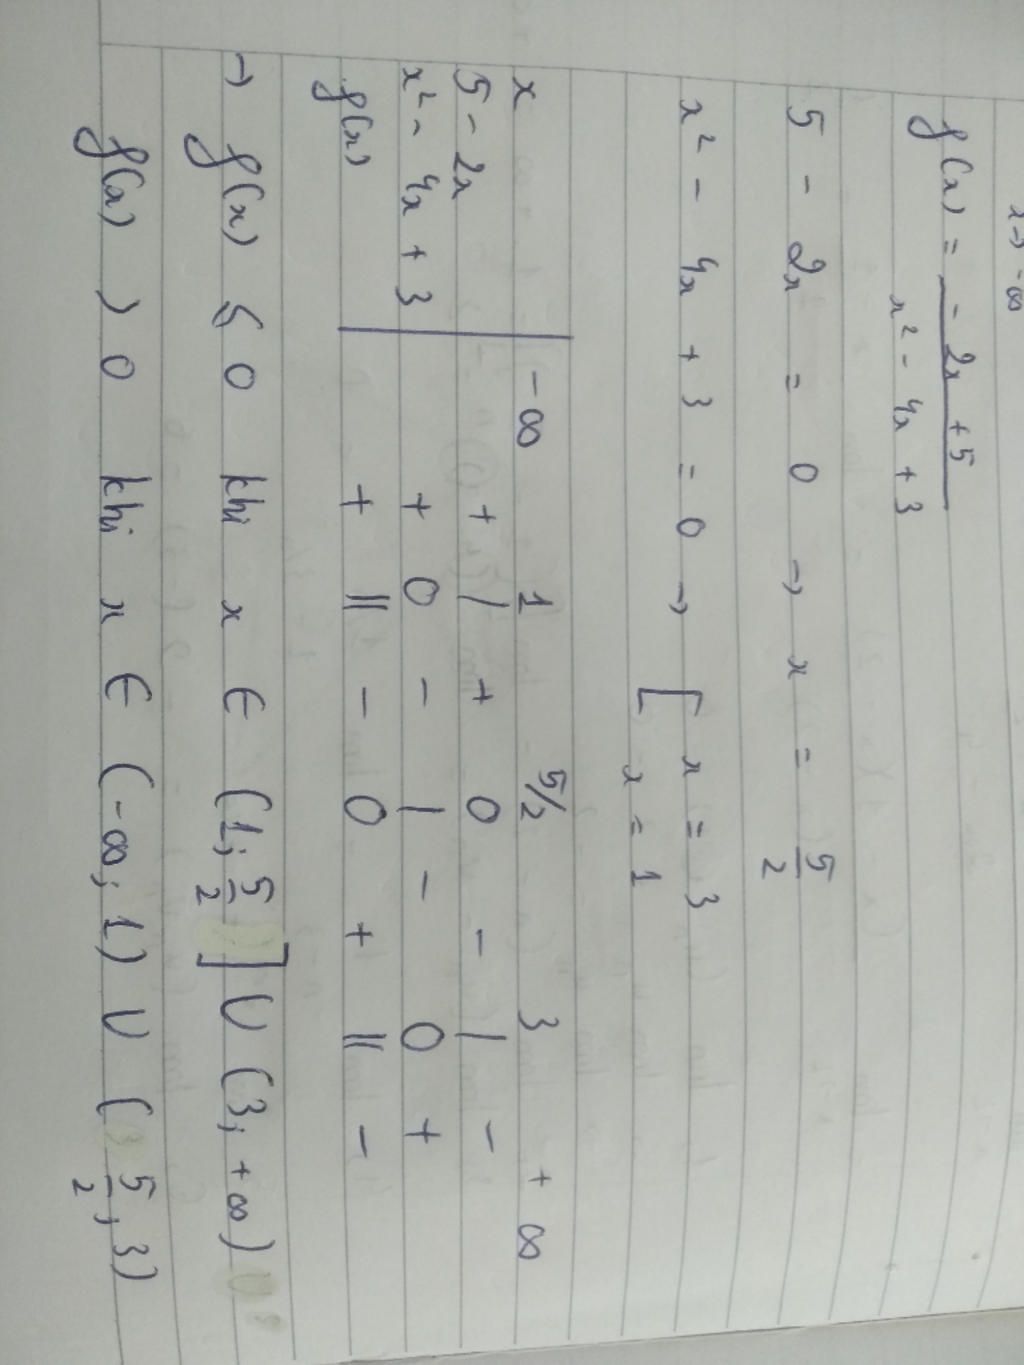 x → -∞
f(x) = -2x + 5 / x² - 4x + 3
5 - 2x = 0 → x = 5/2
x² - 4x + 3 = 0 → [ x = 3
x = 1
x -∞ 1 5/2 3 +∞
5 - 2x + | + 0 - | -
x² - 4x + 3 + 0 - | - 0 +
f(x) + || - 0 + || -
→ f(x) ≤ 0 khi x ∈ (1; 5/2] ∪ (3; +∞)
f(x) > 0 khi x ∈ (-∞; 1) ∪ (5/2; 3)